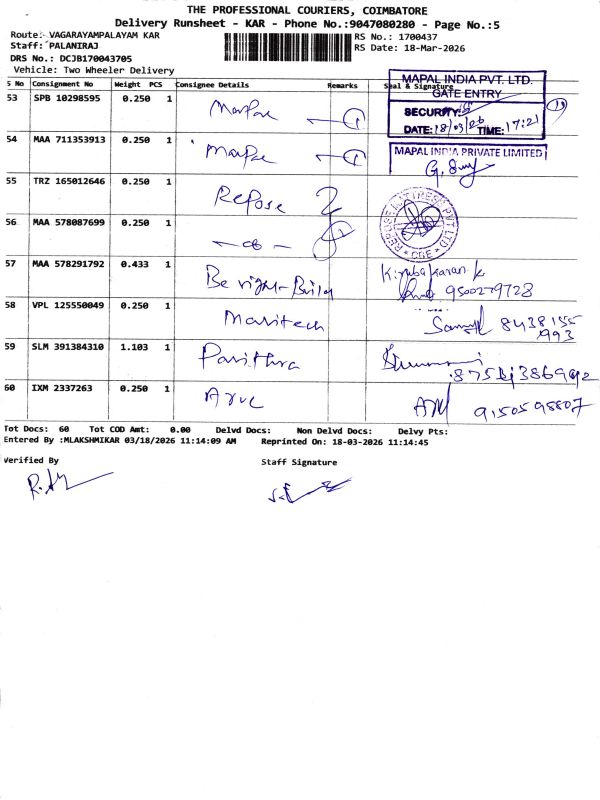 THE PROFESSIONAL COURIERS, COIMBATORE
Delivery Runsheet - KAR - Phone No.:9047080280 - Page No.:5
Route: VAGARAYAMPALAYAM KAR
RS No.: 1700437
Staff: PALANIRAJ
RS Date: 18-Mar-2026
DRS No.: DCJB170043705
Vehicle: Two Wheeler Delivery
S No Consignment No Weight PCS Consignee Details Remarks Seal & Signature
MAPAL INDIA PVT. LTD.
GATE ENTRY
SECURITY:
DATE: 18/03/26 TIME: 17:21
53 SPB 10298595 0.250 1
MAPAL INDIA PRIVATE LIMITED
54 MAA 711353913 0.250 1
55 TRZ 165012646 0.250 1 Repose
REPOSE MATTRESS PVT LTD
CBE
56 MAA 578087699 0.250 1
57 MAA 578291792 0.433 1 Be right-Build
Kirubakaran k
9500279728
58 VPL 125550049 0.250 1 Maritech
8438155
993
59 SLM 391384310 1.103 1 Pavithra
60 IXM 2337263 0.250 1
9150598807
Tot Docs: 60 Tot COD Amt: 0.00 Delvd Docs: Non Delvd Docs: Delvy Pts:
Entered By :MLAKSHMIKAR 03/18/2026 11:14:09 AM Reprinted On: 18-03-2026 11:14:45
Verified By Staff Signature